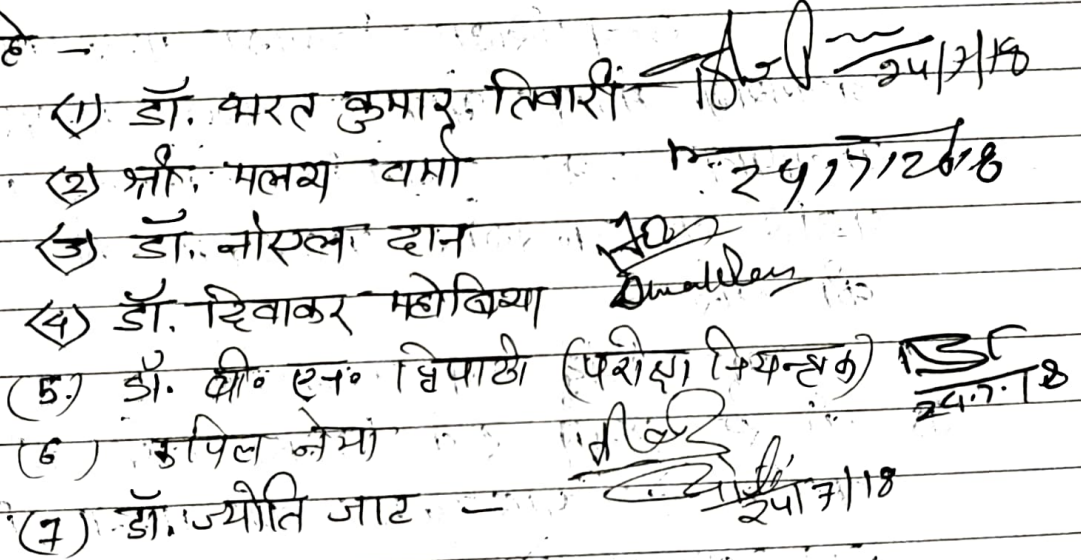 है: -
(1) डॉ. भरत कुमार तिवारी 24/7/18
(2) श्री मलय वर्मा 24/7/2018
(3) डॉ. नोएल दान
(4) डॉ. दिवाकर महोबिया
(5.) डॉ. बी० एन० त्रिपाठी (परीक्षा नियन्त्रक) 24.7.18
(6) कपिल नेमा
(7) डॉ. ज्योति जाट - 24/7/18